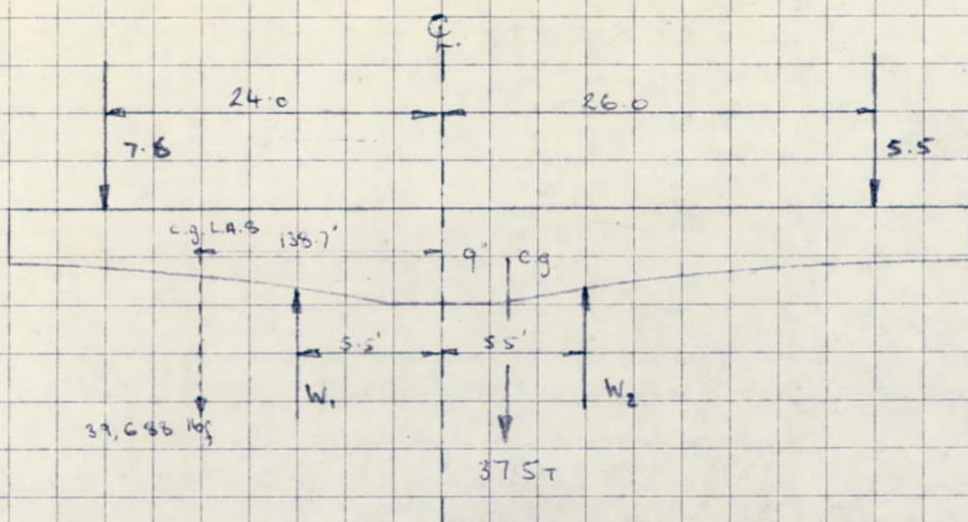 ℄
24.0
26.0
7.8
5.5
c.g. L.A.8
138.7'
9'
cg
5.5'
55'
W1
W2
39,688 lbf
37 5T